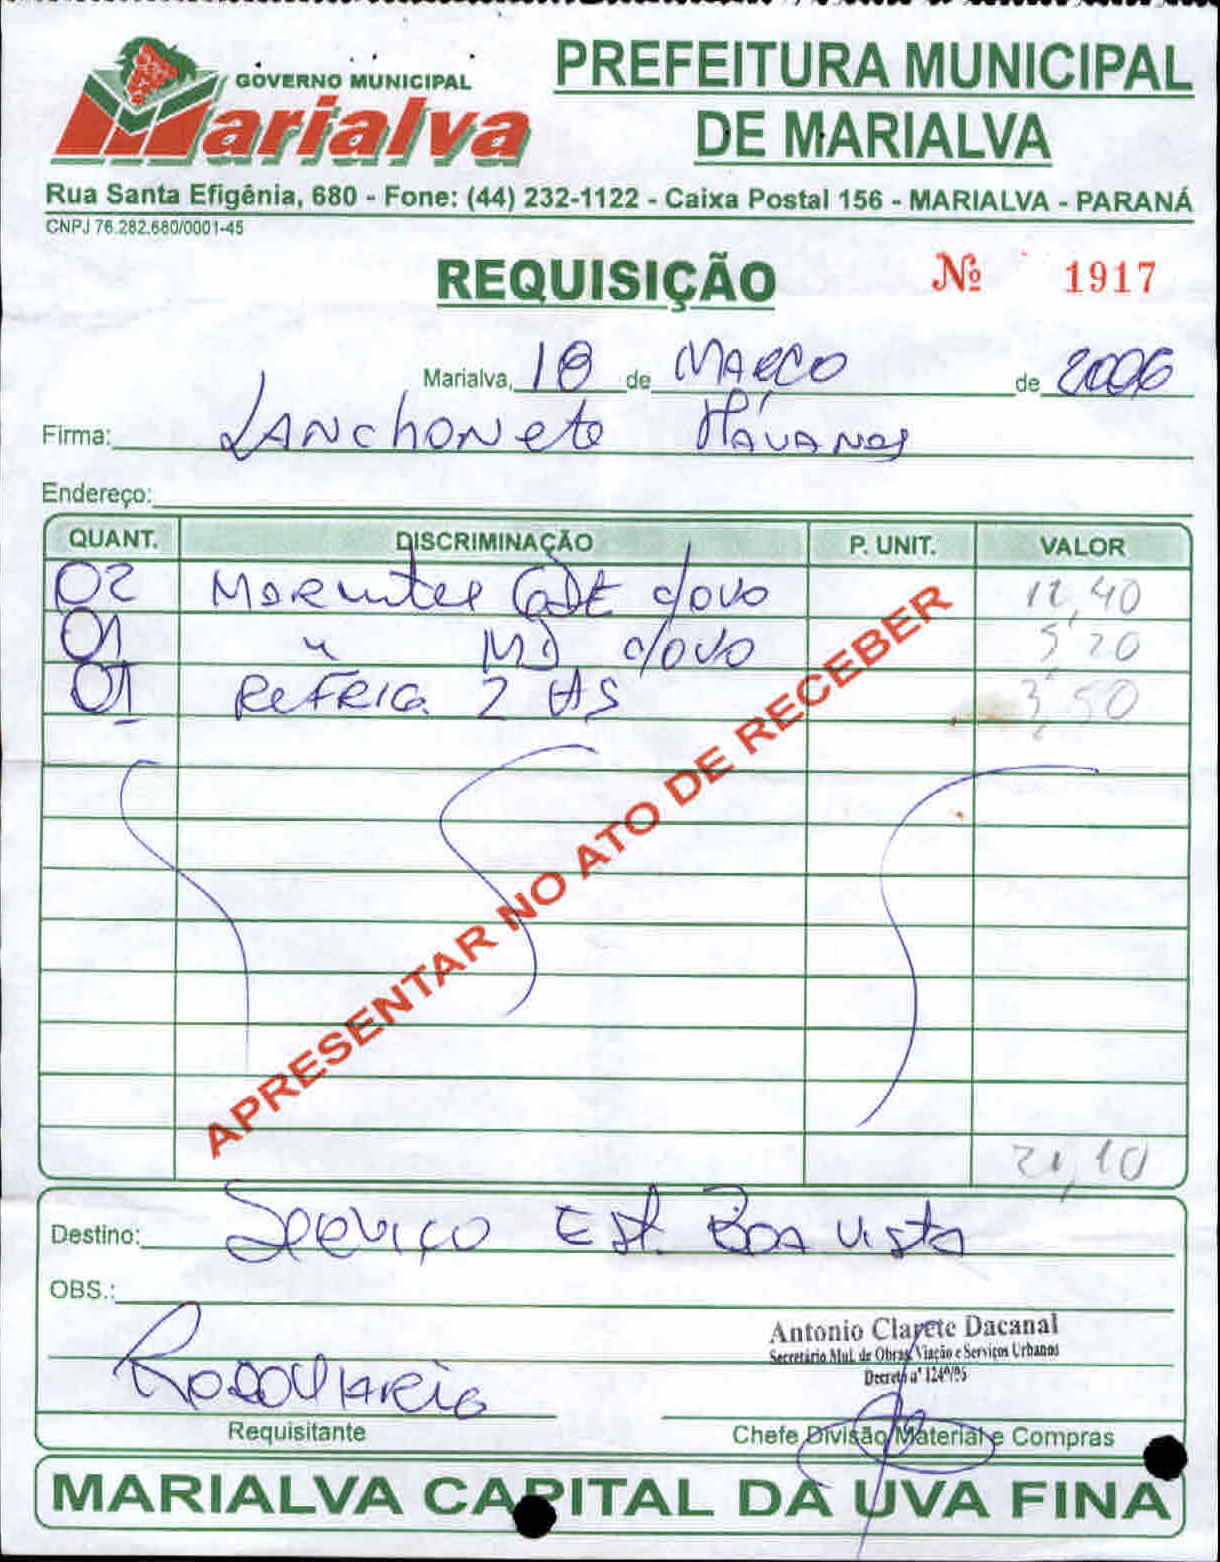 GOVERNO MUNICIPAL
Marialva
PREFEITURA MUNICIPAL
DE MARIALVA
Rua Santa Efigênia, 680 - Fone: (44) 232-1122 - Caixa Postal 156 - MARIALVA - PARANÁ
CNPJ 76.282.680/0001-45
REQUISIÇÃO Nº 1917
Marialva, 18 de MARÇO de 2006
Firma: LANchoNete HAVANOS
Endereço:
QUANT. DISCRIMINAÇÃO P. UNIT. VALOR
02 MARmitex GDE c/ovo 12,40
01 " MD c/ovo 5,20
01 ReFRIG. 2 LTS 3,50
APRESENTAR NO ATO DE RECEBER
21,10
Destino: Serviço Est. Boa Vista
OBS.:
Antonio Clarete Dacanal
Secretário Mul. de Obras Viação e Serviços Urbanos
Decreto nº
Requisitante Chefe Divisão Material e Compras
MARIALVA CAPITAL DA UVA FINA